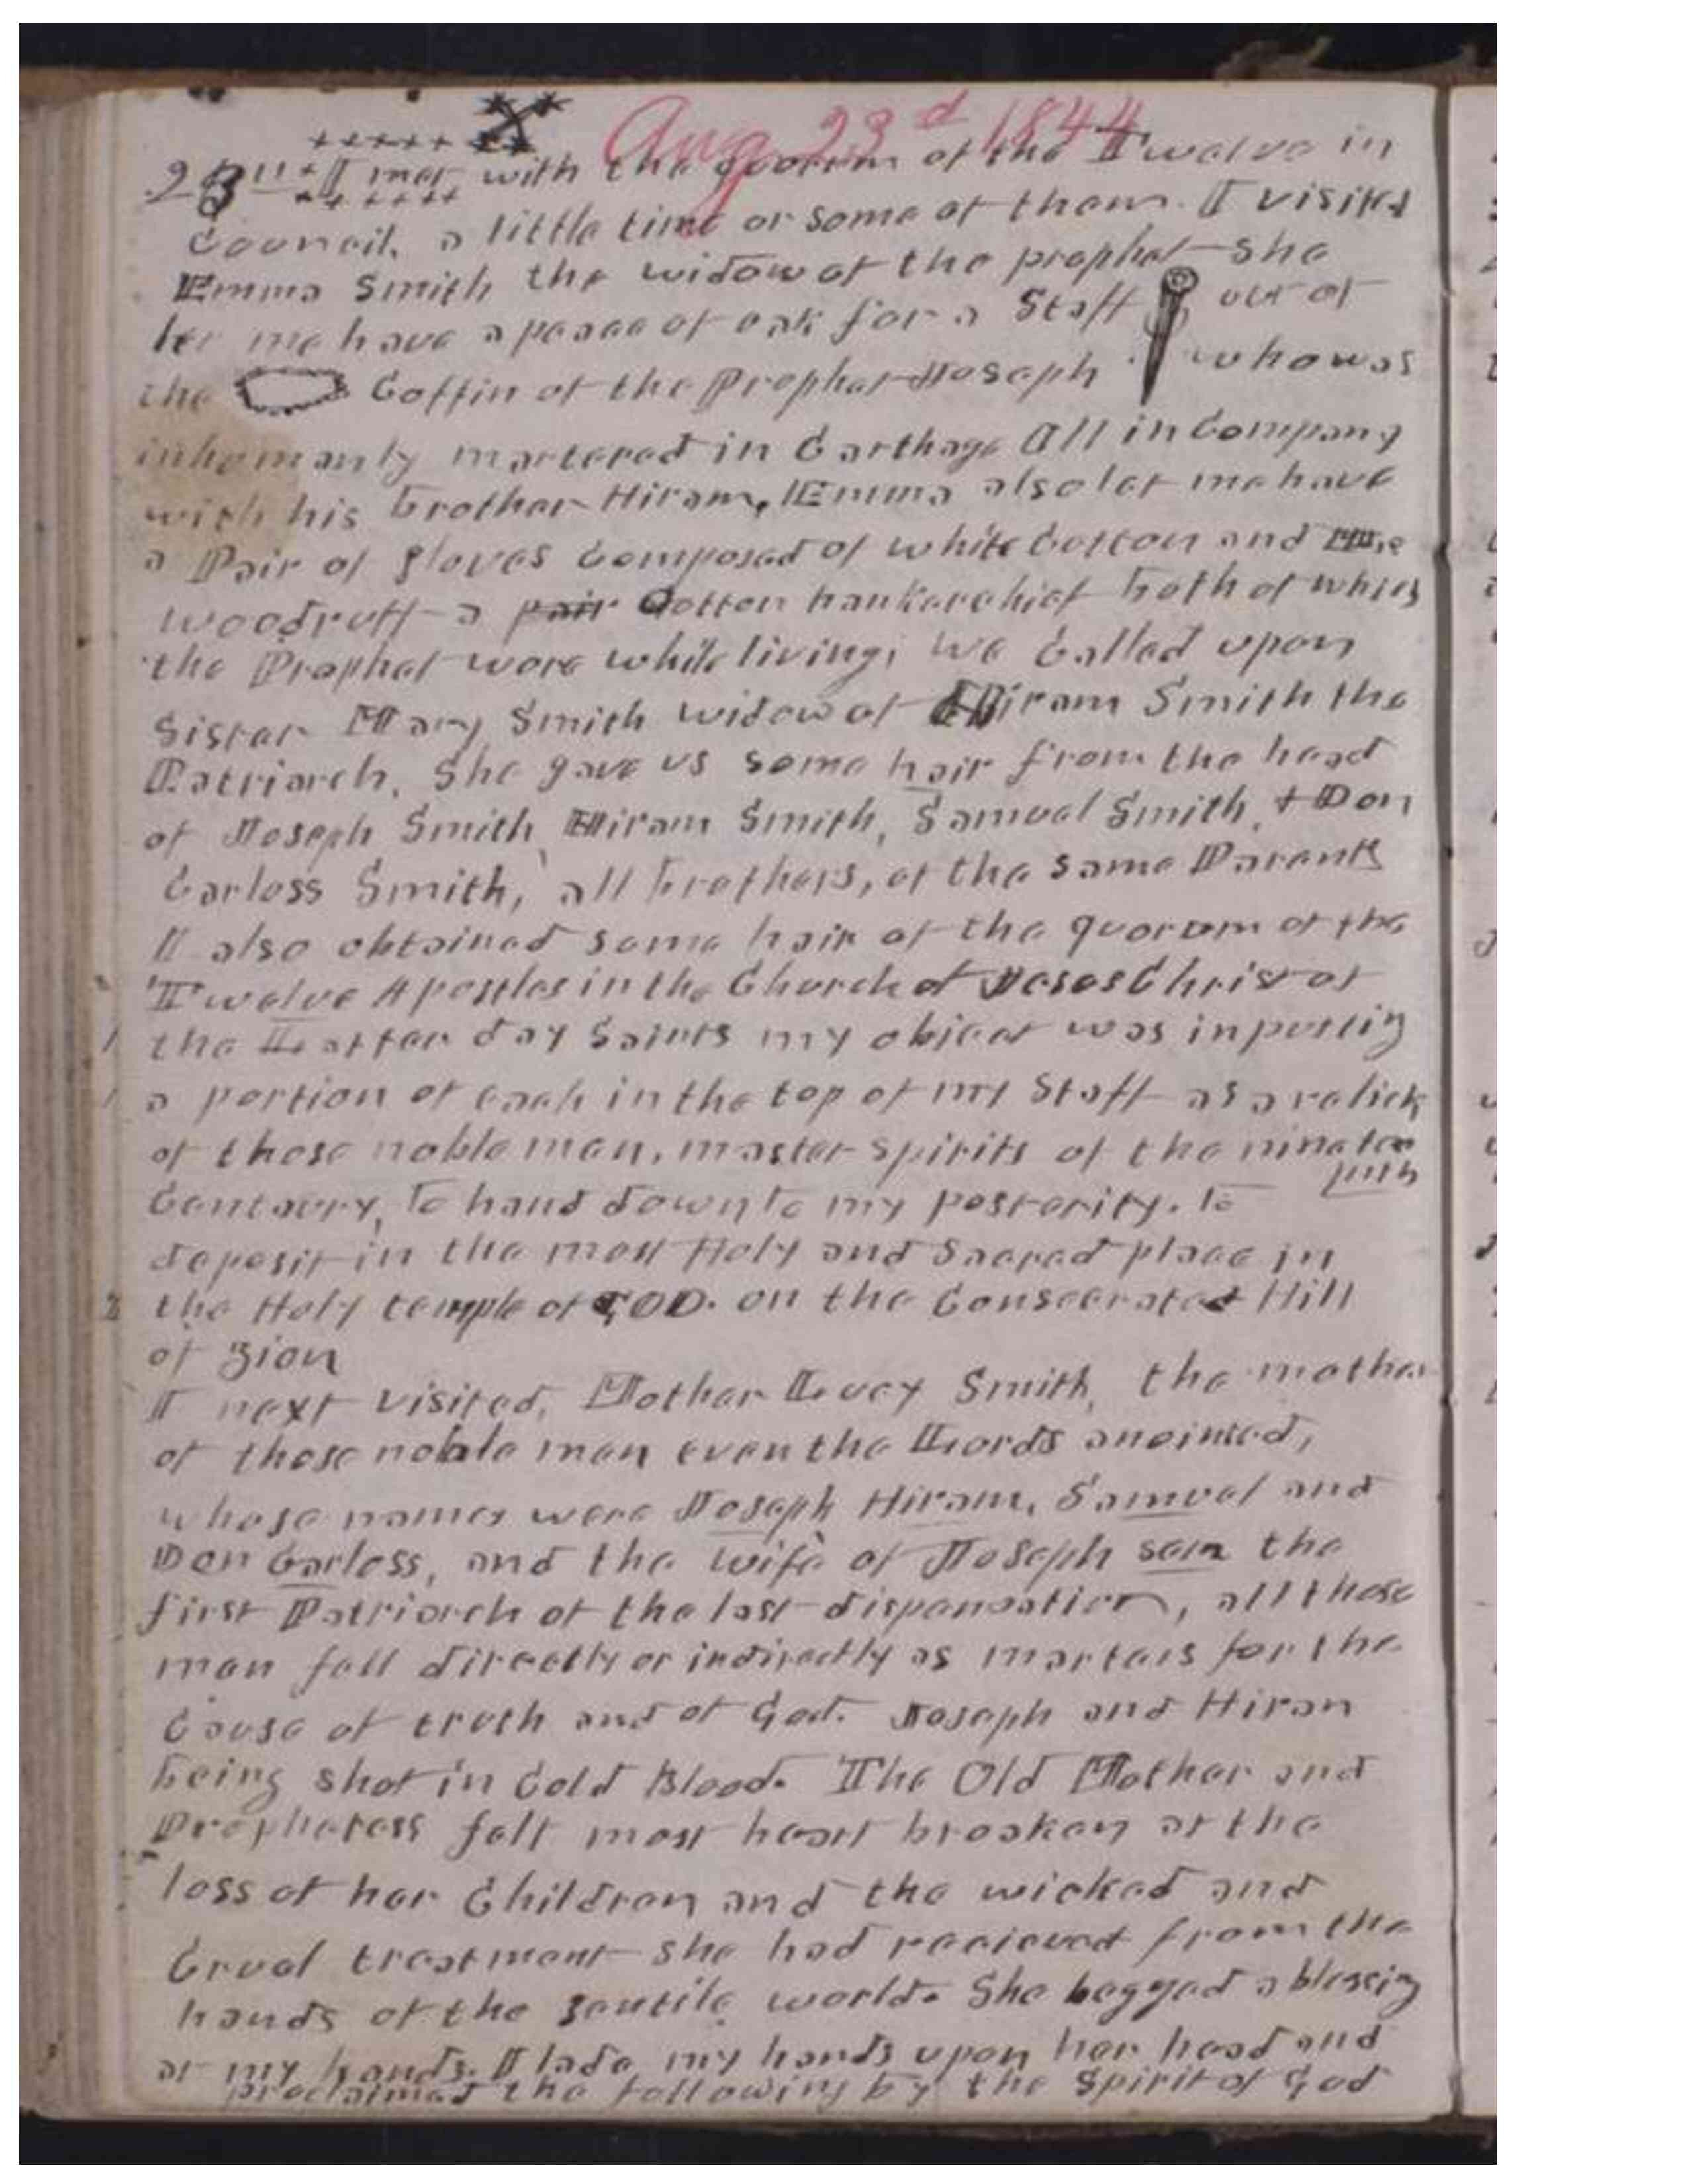 Aug 23d 1844
23rd I met with the quorum of the Twelve in
Council, a little time or some of them. I visited
Emma Smith the widow of the prophet she
let me have a peace of oak for a Staff out of
the Coffin of the Prophet Joseph who was
inhumanly martered in Carthage Ill in Company
with his brother Hiram. Emma also let me have
a Pair of gloves Composed of white Cotton and Mrs
woodruff a pair Cotton hankerchief both of which
the Prophet wore while living; we Called upon
Sister Mary Smith widow of Hiram Smith the
Patriarch. She gave us some hair from the head
of Joseph Smith, Hiram Smith, Samuel Smith, + Don
Carloss Smith, all brothers, of the same Parents
I also obtained some hair of the quorum of the
Twelve Apostles in the Church of Jesus Christ of
the Latter day Saints my object was in putting
a portion of each in the top of my Staff as a relick
of those noble men, master spirits of the nineteenth
Centaury, to hand down to my posterity. to
deposit in the most Holy and Sacred place in
the Holy temple of GOD. on the Consecrated Hill
of Zion
I next visited, Mother Lucy Smith, the mother
of those noble men even the Lords anointed,
whose names were Joseph Hiram, Samuel and
Don Carloss, and the wife of Joseph sen the
first Patriarch of the last dispensation, all these
men fell directly or indirectly as marters for the
Cause of truth and of God. Joseph and Hiram
being shot in Cold Blood. The Old Mother and
Prophetess felt most heart broaken at the
loss of her Children and the wicked and
Cruel treatment she had recieved from the
hands of the gentile world. She begged a blessing
at my hands. I lade my hands upon her head and
proclaimed the following by the spirit of God